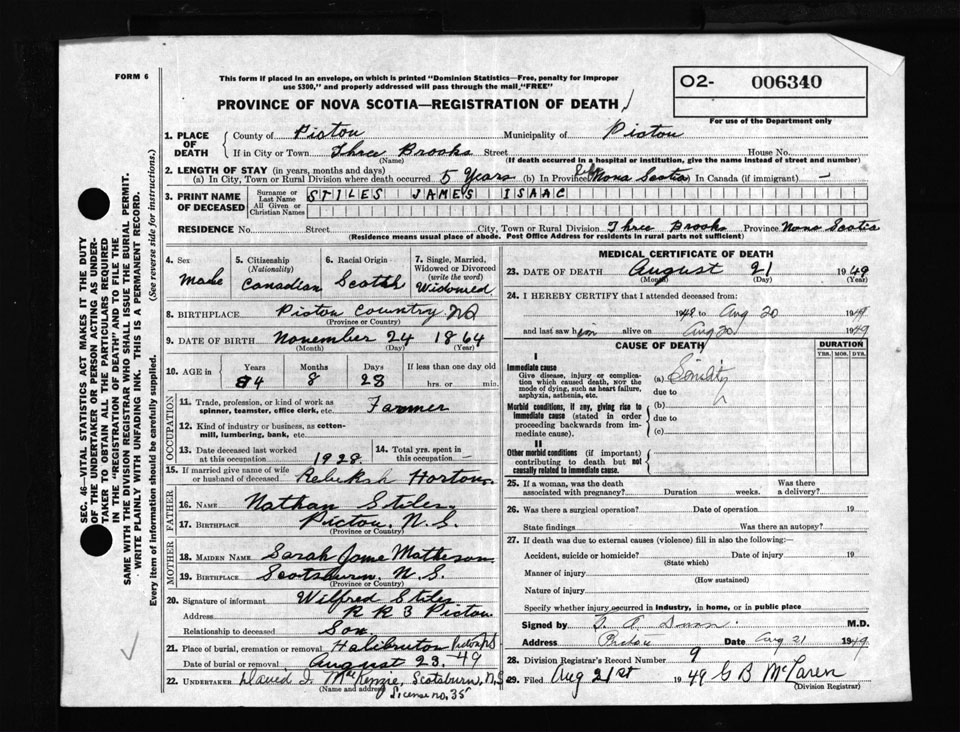 FORM 6
This form if placed in an envelope, on which is printed "Dominion Statistics—Free, penalty for improper
use $300," and properly addressed will pass through the mail "FREE"
O2- 006340
For use of the Department only
PROVINCE OF NOVA SCOTIA—REGISTRATION OF DEATH
1. PLACE OF DEATH County of Pictou Municipality of Pictou
If in City or Town Three Brooks Street House No.
(Name) (If death occurred in a hospital or institution, give the name instead of street and number)
2. LENGTH OF STAY (in years, months and days)
(a) In City, Town or Rural Division where death occurred 5 Years (b) In Province Life Nova Scotia In Canada (if immigrant) —
3. PRINT NAME OF DECEASED Surname or Last Name STILES JAMES ISAAC
All Given or Christian Names
RESIDENCE No. Street City, Town or Rural Division Three Brooks Province Nova Scotia
(Residence means usual place of abode. Post Office Address for residents in rural parts not sufficient)
4. Sex Male
5. Citizenship (Nationality) Canadian
6. Racial Origin Scotch
7. Single, Married, Widowed or Divorced (write the word) Widowed
8. BIRTHPLACE Pictou Country NS
(Province or Country)
9. DATE OF BIRTH November 24 1864
(Month) (Day) (Year)
10. AGE in Years Months Days If less than one day old
84 8 28 hrs. or min.
OCCUPATION
11. Trade, profession, or kind of work as spinner, teamster, office clerk, etc. Farmer
12. Kind of industry or business, as cotten-mill, lumbering, bank, etc.
13. Date deceased last worked at this occupation 1928
14. Total yrs. spent in this occupation —
15. If married give name of wife or husband of deceased Rebekah Horton
FATHER
16. NAME Nathan Stiles
17. BIRTHPLACE Pictou, N.S.
(Province or Country)
MOTHER
18. MAIDEN NAME Sarah Jane Matheson
19. BIRTHPLACE Scotsburn, N.S.
(Province or Country)
20. Signature of informant Wilfred Stiles
Address R R 3 Pictou
Relationship to deceased Son
21. Place of burial, cremation or removal Haliburton Pictou NS
Date of burial or removal August 23. 49
22. UNDERTAKER David I. McKenzie, Scotsburn, N.S.
(Name and address) License no. 35
MEDICAL CERTIFICATE OF DEATH
23. DATE OF DEATH August 21 1949
(Month) (Day) (Year)
24. I HEREBY CERTIFY that I attended deceased from:
1948 to Aug 20 1949
and last saw him alive on Aug 20 1949
CAUSE OF DEATH DURATION
YRS. MOS. DYS.
I
Immediate cause
Give disease, injury or complication which caused death, not the mode of dying, such as heart failure, asphyxia, asthenia, etc.
(a) Senility
due to
Morbid conditions, if any, giving rise to immediate cause (stated in order proceeding backwards from immediate cause).
(b)
due to
(c)
II
Other morbid conditions (if important) contributing to death but not causally related to immediate cause.
25. If a woman, was the death associated with pregnancy? Duration weeks. Was there a delivery?
26. Was there a surgical operation? Date of operation 19
State findings Was there an autopsy?
27. If death was due to external causes (violence) fill in also the following:—
Accident, suicide or homicide? Date of injury 19
(State which)
Manner of injury
(How sustained)
Nature of injury
Specify whether injury occurred in Industry, in home, or in public place
Signed by M.D.
Address Pictou Date Aug 21 1949
28. Division Registrar's Record Number 9
29. Filed Aug 21st 1949 G B McLaren
(Division Registrar)
SEC. 46—VITAL STATISTICS ACT MAKES IT THE DUTY
OF THE UNDERTAKER OR PERSON ACTING AS UNDER-
TAKER TO OBTAIN ALL THE PARTICULARS REQUIRED
IN THE "REGISTRATION OF DEATH" AND TO FILE THE
SAME WITH THE DIVISION REGISTRAR WHO SHALL ISSUE THE BURIAL PERMIT.
WRITE PLAINLY WITH UNFADING INK. THIS IS A PERMANENT RECORD.
Every item of information should be carefully supplied. (See reverse side for instructions.)